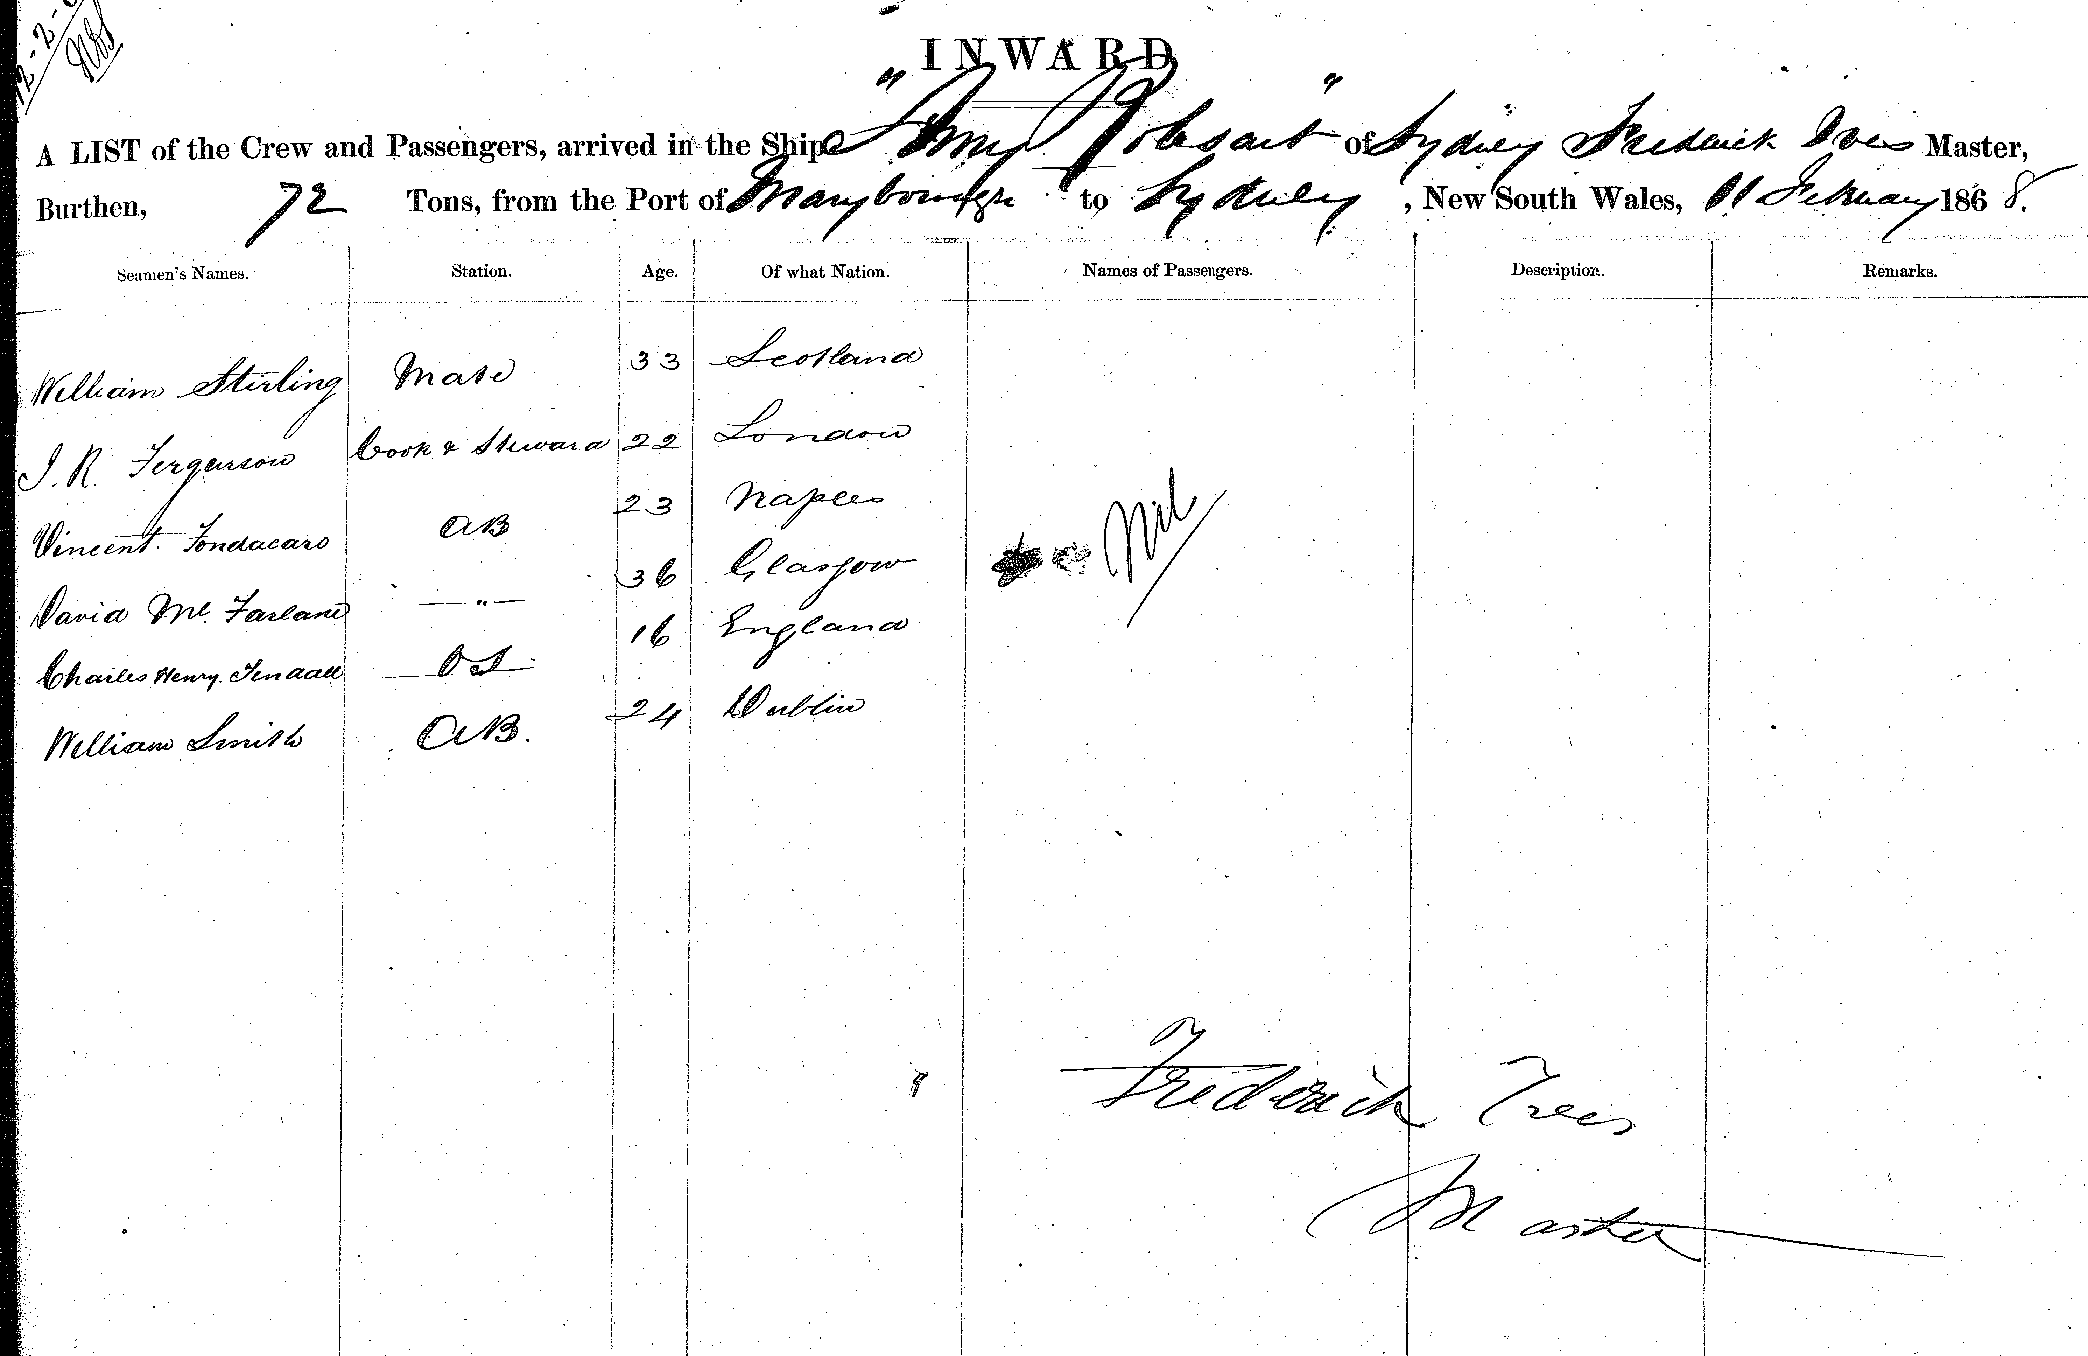 12-2-
INWARD
A LIST of the Crew and Passengers, arrived in the Ship "Amy Robsart" of Sydney Frederick Ives Master,
Burthen, 72 Tons, from the Port of Maryborough to Sydney, New South Wales, 11 February 1868.
Seamen's Names. Station. Age. Of what Nation. Names of Passengers. Description. Remarks.
William Stirling Mate 33 Scotland
J. R. Ferguson Cook & Steward 22 London
Vincent. Fondacaro AB 23 Naples Nil
David Mc. Farlane —"— 36 Glasgow
Charles Henry. OS 16 England
William Smith AB. 24 Dublin
Frederick Ives
Master